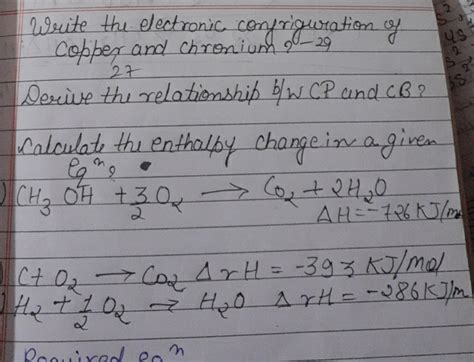 Write the electronic configuration of
Copper and chronium ? - 29
27
Derive the relationship b/w CP and CB?
Calculate the enthalpy change in a given
eqⁿ ?
CH3 OH + 3/2 O2 → CO2 + 2H2O
ΔH = -726 KJ/m
C + O2 → CO2 ΔrH = -393 KJ/mol
H2 + 1/2 O2 → H2O ΔrH = -286 KJ/m
Required eqⁿ